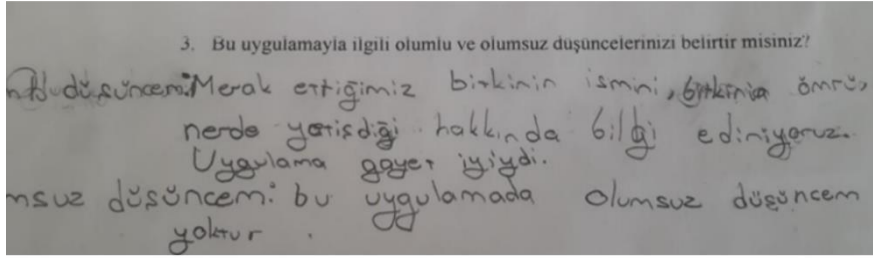 3. Bu uygulamayla ilgili olumlu ve olumsuz düşüncelerinizi belirtir misiniz?
düşüncem: Merak ettiğimiz bitkinin ismini, bitkinin ömrü,
nerde yetişdiği hakkında bilgi ediniyoruz.
Uygulama gayet iyiydi.
msuz düşüncem: bu uygulamada olumsuz düşüncem
yoktur.